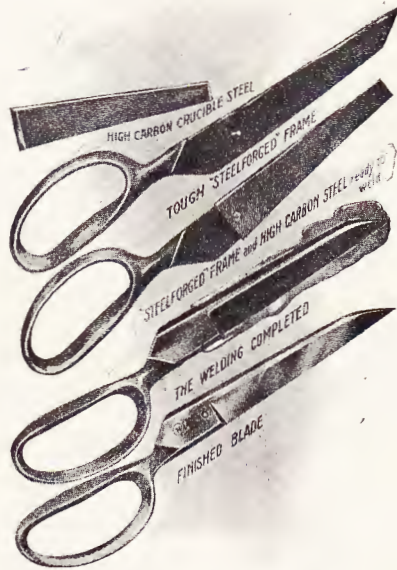 HIGH CARBON CRUCIBLE STEEL
TOUGH "STEELFORGED" FRAME
"STEELFORGED" FRAME and HIGH CARBON STEEL ready to
weld
THE WELDING COMPLETED
FINISHED BLADE